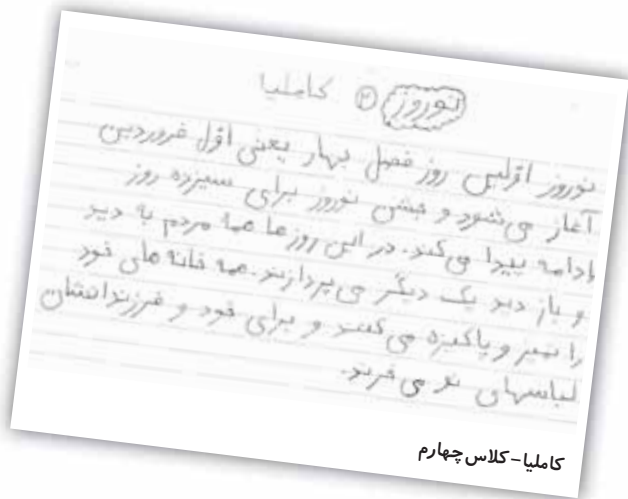 نوروز ۲ کاملیا
نوروز اوّلین روز فصل بهار یعنی اوّل فروردین
آغاز می‌شود و جشن نوروز برای سیزده روز
ادامه پیدا می‌کند. در این روزها همهٔ مردم به دید
و باز دید یک دیگر می‌پردازند. همه خانه های خود
را تمیز و پاکیزه می‌کنند و برای خود و فرزندانشان
لباسهای نو می‌خرند.
کاملیا - کلاس چهارم